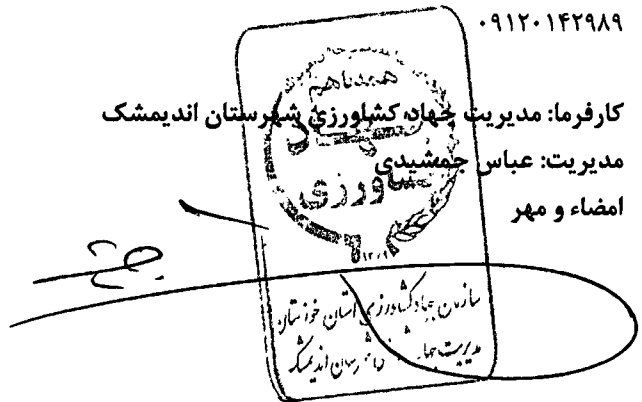 ۰۹۱۲۰۱۴۲۹۸۹
همدلاهم
کارفرما: مدیریت جهاد کشاورزی شهرستان اندیمشک
جهاد
مدیریت: عباس جمشیدی
کشاورزی
امضاء و مهر
سازمان جهاد کشاورزی استان خوزستان
مدیریت جهاد اندیمشک